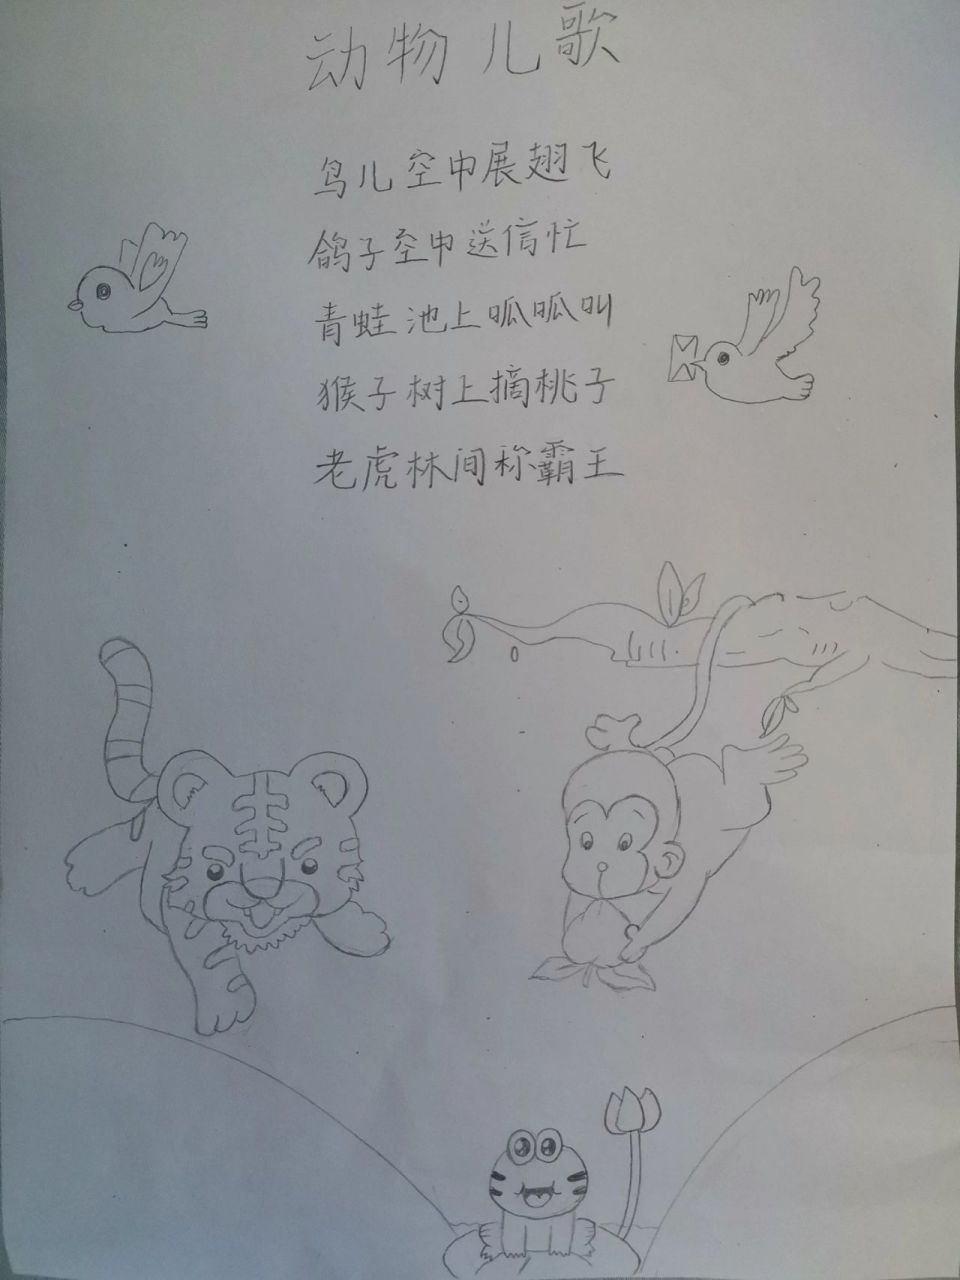 动物儿歌
鸟儿空中展翅飞
鸽子空中送信忙
青蛙池上呱呱叫
猴子树上摘桃子
老虎林间称霸王